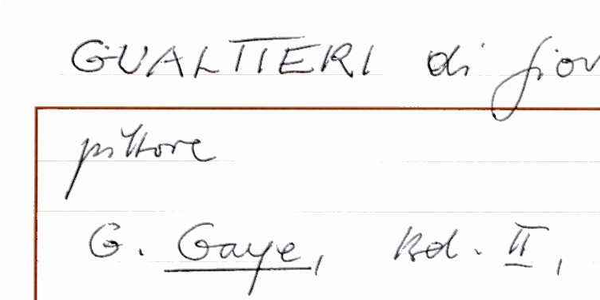 GUALTIERI di Giov
pittore
G. Gaye, Bd. II,